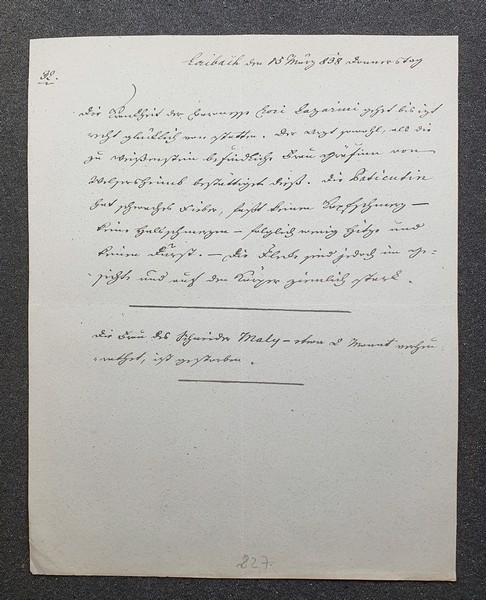 Laibach den 15 März 838 Donnerstag
Die Krankheit der Baronesse Cori Lazarini gehet bis izt
recht glücklich von statten. Der Arzt sowohl, als die
zu Weißenstein befindliche Frau Gräfinn von
Welsersheimb bestättigen dieß. Die Patientin
hat schwaches Fieber, hat keinen Kopfschmerz –
keine Halsschmerzen – folglich wenig Hitze und
keinen Durst. – Die Flecke sind jedoch im Ge=
sichte und auf dem Körper ziemlich stark.
Die Frau des Schneider Maly – etwa 8 Monat verheu=
rathet, ist gestorben.
227.